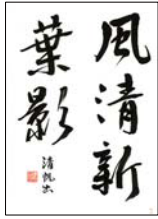 風清新
葉影
清帆書